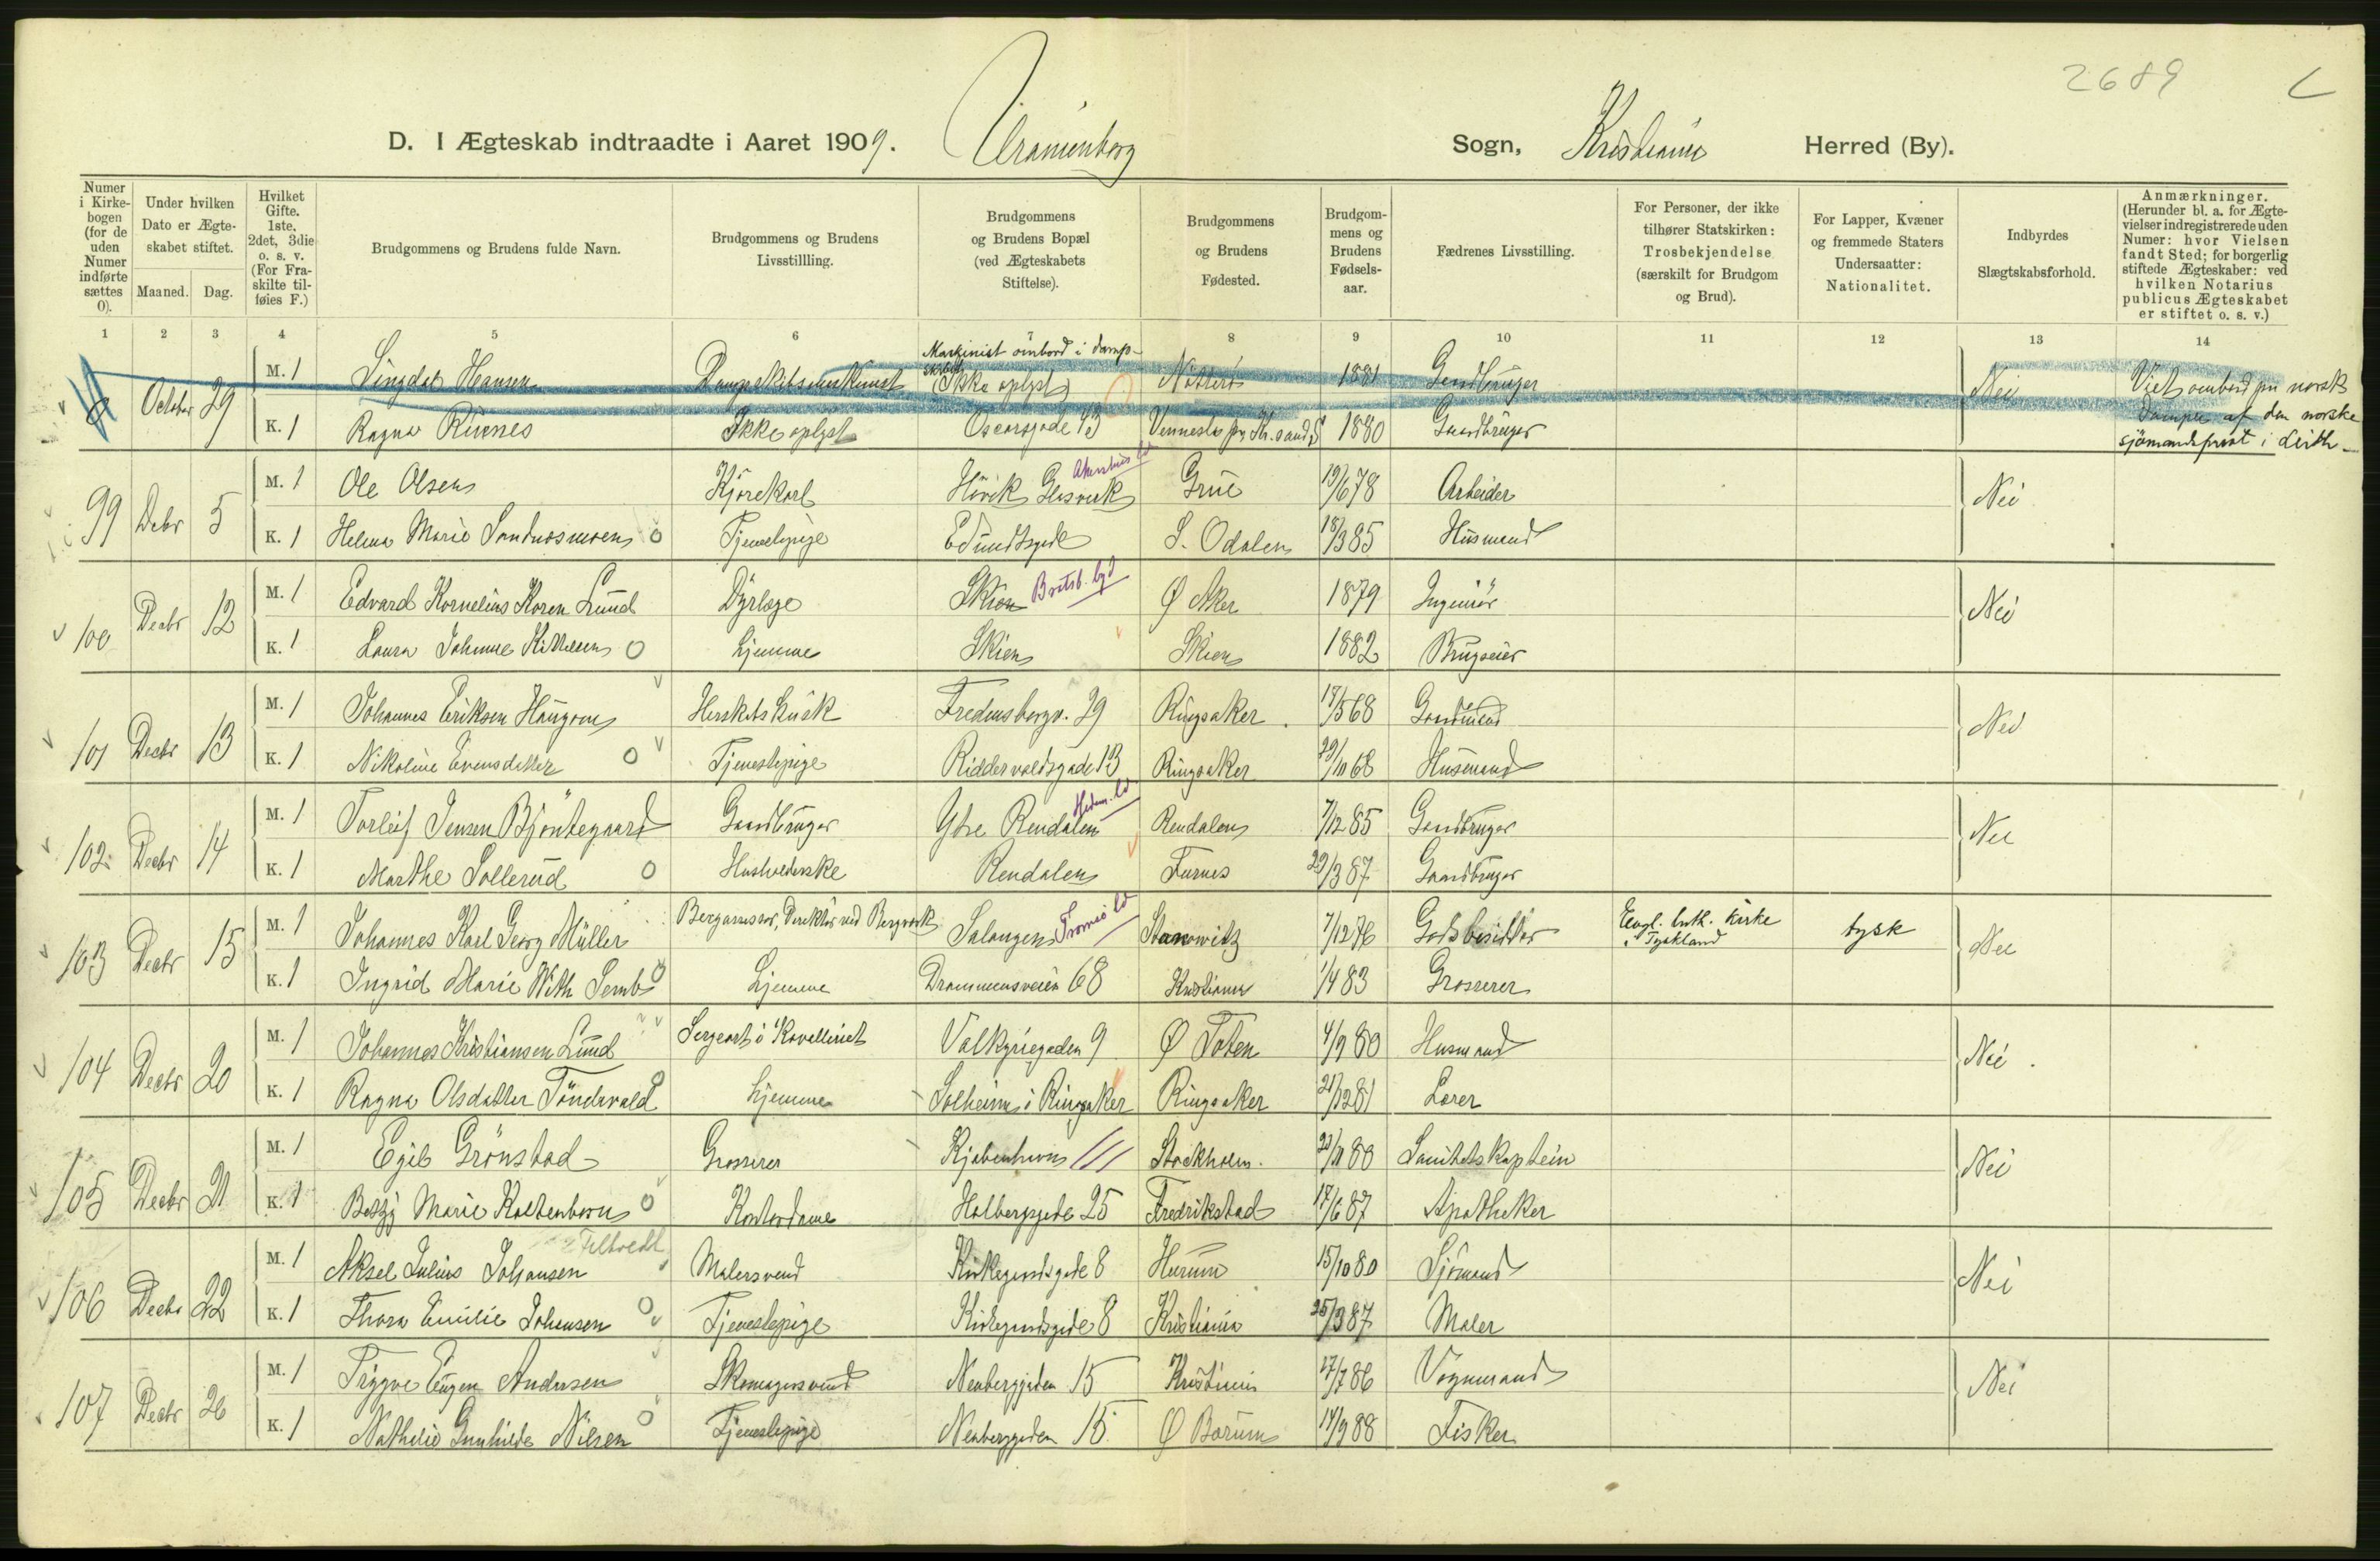 2689
D. I Ægteskab indtraadte i Aaret 1909. Uranienborg Sogn, Kristiania Herred (By).
Numer i Kirkebogen (for de uden Numer indførte sættes 0). | Under hvilken Dato er Ægteskabet stiftet. Maaned. Dag. | Hvilket Gifte. 1ste, 2det, 3die o. s. v. (For Fraskilte tilføies F.) | Brudgommens og Brudens fulde Navn. | Brudgommens og Brudens Livsstillling. | Brudgommens og Brudens Bopæl (ved Ægteskabets Stiftelse). | Brudgommens og Brudens Fødested. | Brudgommens og Brudens Fødselsaar. | Fædrenes Livsstilling. | For Personer, der ikke tilhører Statskirken: Trosbekjendelse (særskilt for Brudgom og Brud). | For Lapper, Kvæner og fremmede Staters Undersaatter: Nationalitet. | Indbyrdes Slægtskabsforhold. | Anmærkninger. (Herunder bl. a. for Ægtevielser indregistrerede uden Numer: hvor Vielsen fandt Sted; for borgerlig stiftede Ægteskaber: ved hvilken Notarius publicus Ægteskabet er stiftet o. s. v.)
1 2 3 4 5 6 7 8 9 10 11 12 13 14
Maskinist ombord i damp-
0 October 29 M. 1 Hansen (Ikke oplyst) Nötterö 1881 Gaardbruger Nei Viet ombord paa norsk
K. 1 Ragna Ikke oplyst Oscarsgade 43 Vennesla pr. Kr.sand S 1880 Gaardbruger Damper af den norske
sjömandsprest i Leith
99 Debr 5 M. 1 Ole Olsen Kjørekarl Hövik Glasverk Akershus Grue 19/6 78 Arbeider Nei
K. 1 Helma Marie o Tjenestepige S. Odalen 18/3 85 Husmand
100 Decbr 12 M. 1 Edvard Kornelius Koren Lund Dyrlæge Skien Bratsb. Ø Aker 1879 Ingeniör Nei
K. 1 Laura Johanne Kittelsen o Hjemme Skien Skien 1882 Brugseier
101 Decbr 13 M. 1 Johannes Eriksen Haugom Herskabskusk Fredensborgv. 29 Ringsaker 17/5 68 Gaardmand Nei
K. 1 Nikoline Evensdatter o Tjenestepige Riddervoldsgade 13 Ringsaker 29/10 68 Husmand
102 Decbr 14 M. 1 Torleif Jensen Bjöntegaard Gaardbruger Ytre Rendalen Hedm. Rendalen 7/12 85 Gaardbruger Nei
K. 1 Marthe Sollerud o Husholderske Rendalen Furnes 29/3 87 Gaardbruger
103 Decbr 15 M. 1 Johannes Karl Georg Müller Bergassessor, Direktör ved Bergverk Salangen Tromsö Stanowitz 7/12 76 Godsbesidder Evgl. luth. kirke i Tyskland tysk Nei
K. 1 Ingrid Marie With Semb o Hjemme Drammensveien 68 Kristiania 1/4 83 Grosserer
104 Decbr 20 M. 1 Johannes Kristiansen Lund Sergeant i Kavelleriet Valkyriegaden 9 Ø Toten 4/9 80 Husmand Nei
K. 1 Ragna Olsdatter Töndevold o Hjemme Solheim i Ringsaker Ringsaker 21/12 81 Lærer
105 Decbr 21 M. 1 Egil Grönstad Grosserer Kjøbenhavn Stockholm Sanitetskaptein Nei
K. 1 Marie Koltenborn o Kontordame Holbergsgade 25 Fredrikstad 17/6 87 Apotheker
106 Decbr 22 M. 1 Aksel Julius Johansen Malersvend Kirkegaardsgade 8 Hurum 15/10 80 Sjömand Nei
K. 1 Thora Emilie Johansen o Tjenestepige Kirkegaardsgade 8 Kristiania 25/3 87 Maler
107 Decbr 26 M. 1 Trygve Eugen Andersen Skomagersvend Neuberggaden 15 Kristiania 27/7 86 Vognmand Nei
K. 1 Nathalie Gunhilde Nilsen o Tjenestepige Neuberggaden 15 Ø Bærum 14/9 88 Fisker